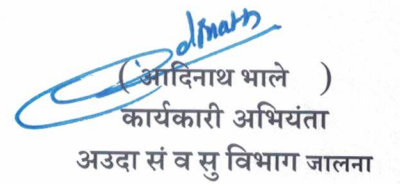 dinath
( आदिनाथ भाले )
कार्यकारी अभियंता
अउदा सं व सु विभाग जालना